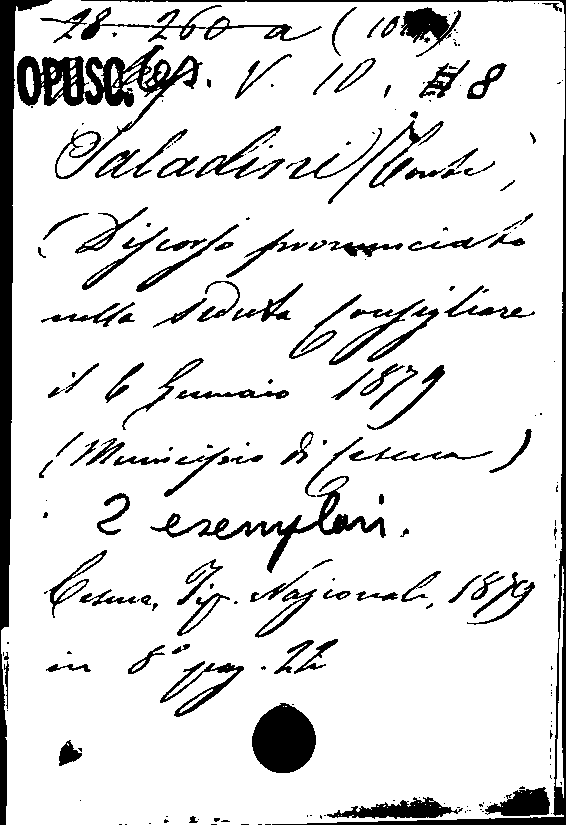 28. 260 a (10
OPUSC. Ces. V. 10, 8
Saladini (Conte)
Discorso pronunciato
nella seduta Consigliare
il 6 Gennaio 1879
(Municipio di Cesena)
2 esemplari.
Cesena, Tip. Nazionale, 1879
in 8° pag. 22